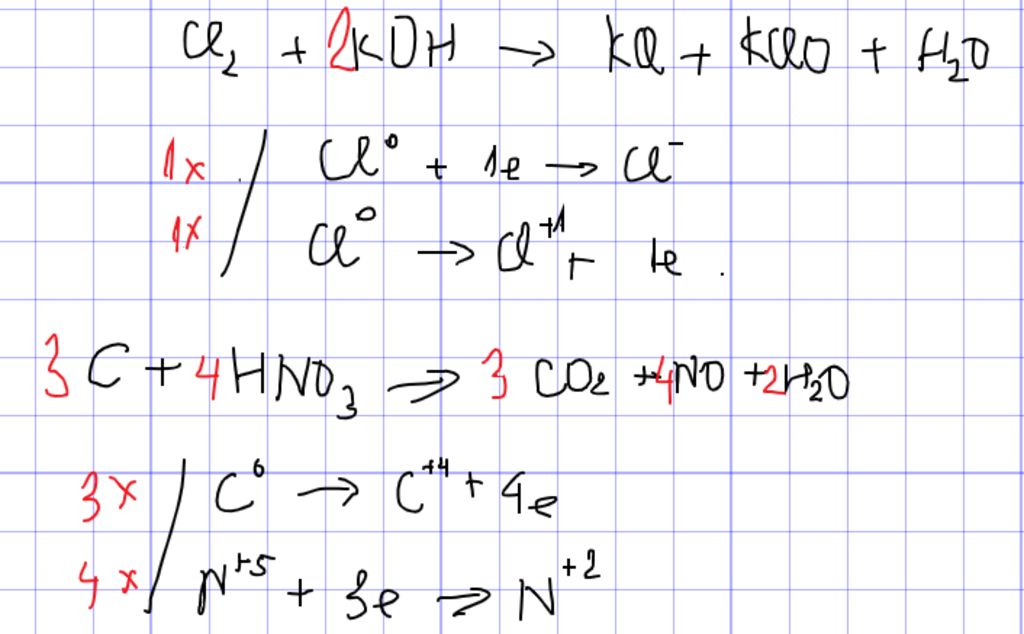 Cl₂ + 2KOH → KCl + KClO + H₂O
1x / Cl⁰ + 1e → Cl⁻
1x / Cl⁰ → Cl⁺¹ + 1e .
3C + 4HNO₃ → 3CO₂ + 4NO + 2H₂O
3x / C⁰ → C⁺⁴ + 4e
4x / N⁺⁵ + 3e → N⁺²